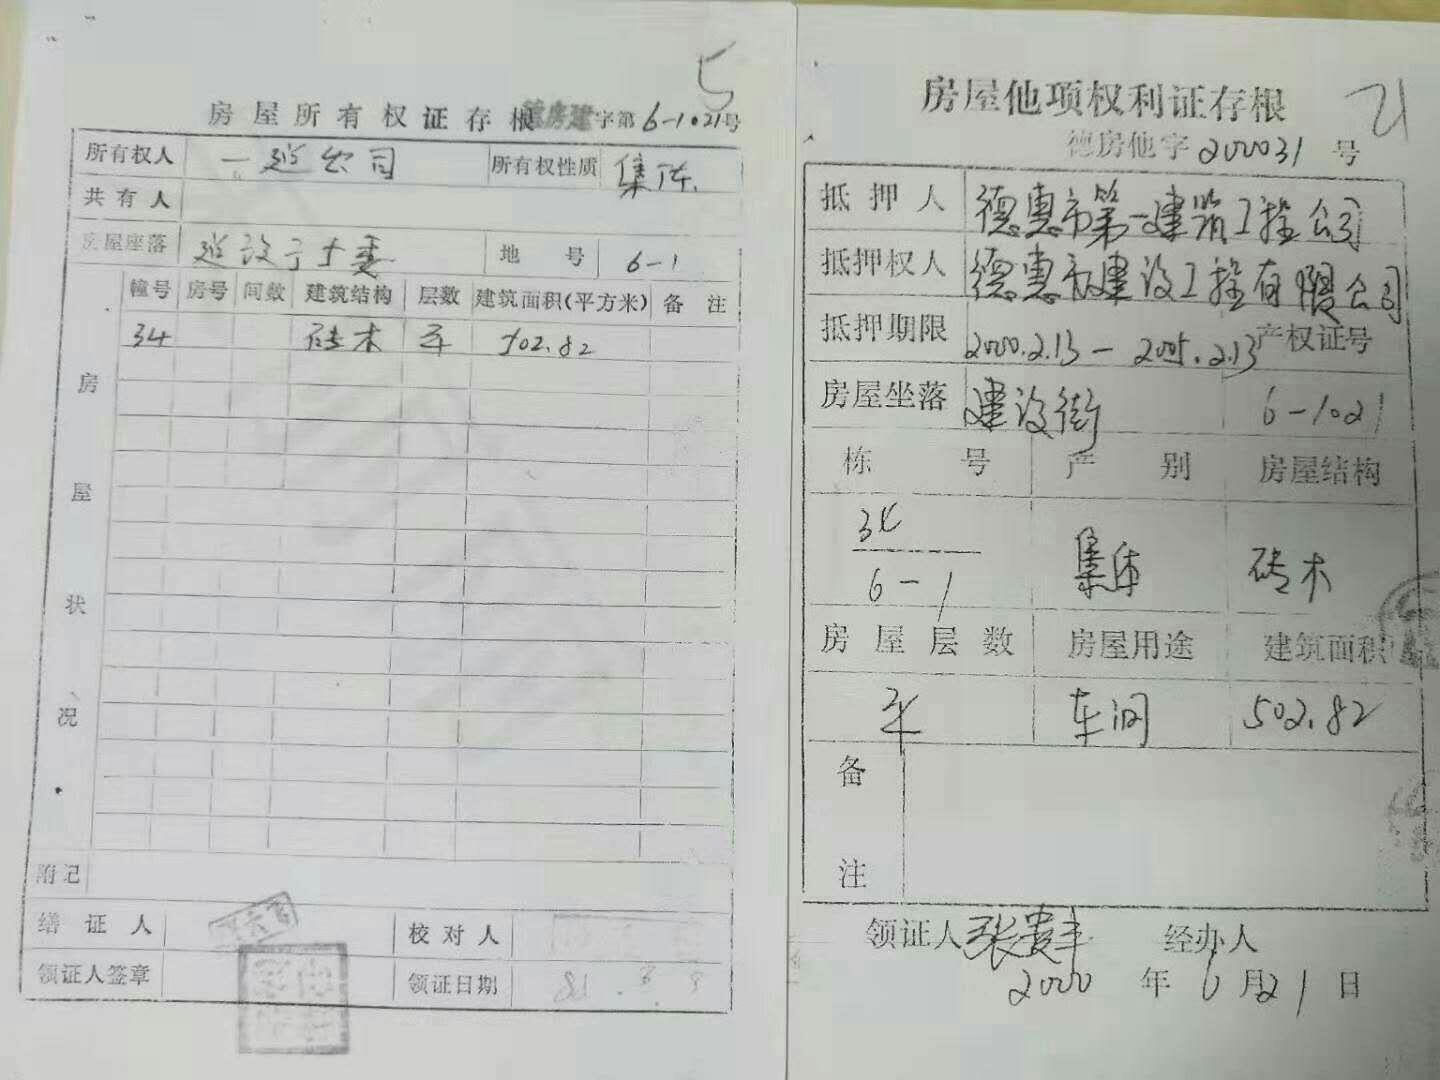 5
房屋所有权证存根 德房建字第6-1021号
所有权人 一建公司 所有权性质 集体
共有人
房屋座落 建设子十委 地号 6-1
房屋状况
幢号 房号 间数 建筑结构 层数 建筑面积(平方米) 备注
34 砖木 平 502.82
附记
缮证人 校对人
领证人签章 领证日期
房屋他项权利证存根
21
德房他字200031号
抵押人 德惠市第一建筑工程公司
抵押权人 德惠市建设工程有限公司
抵押期限 2000.2.13-2005.2.13 产权证号
房屋坐落 建设街 6-1021
栋号 产别 房屋结构
34
6-1 集体 砖木
房屋层数 房屋用途 建筑面积
平 车间 502.82
备注
领证人 张贵丰 经办人
2000年6月21日